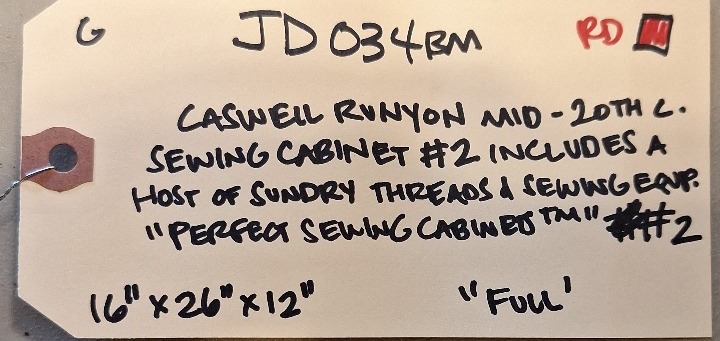 G JD034BM RD
CASWELL RUNYON MID-20TH C.
SEWING CABINET #2 INCLUDES A
HOST OF SUNDRY THREADS & SEWING EQUIP.
"PERFECT SEWING CABINET™" #2
16" x 26" x 12" "FULL'